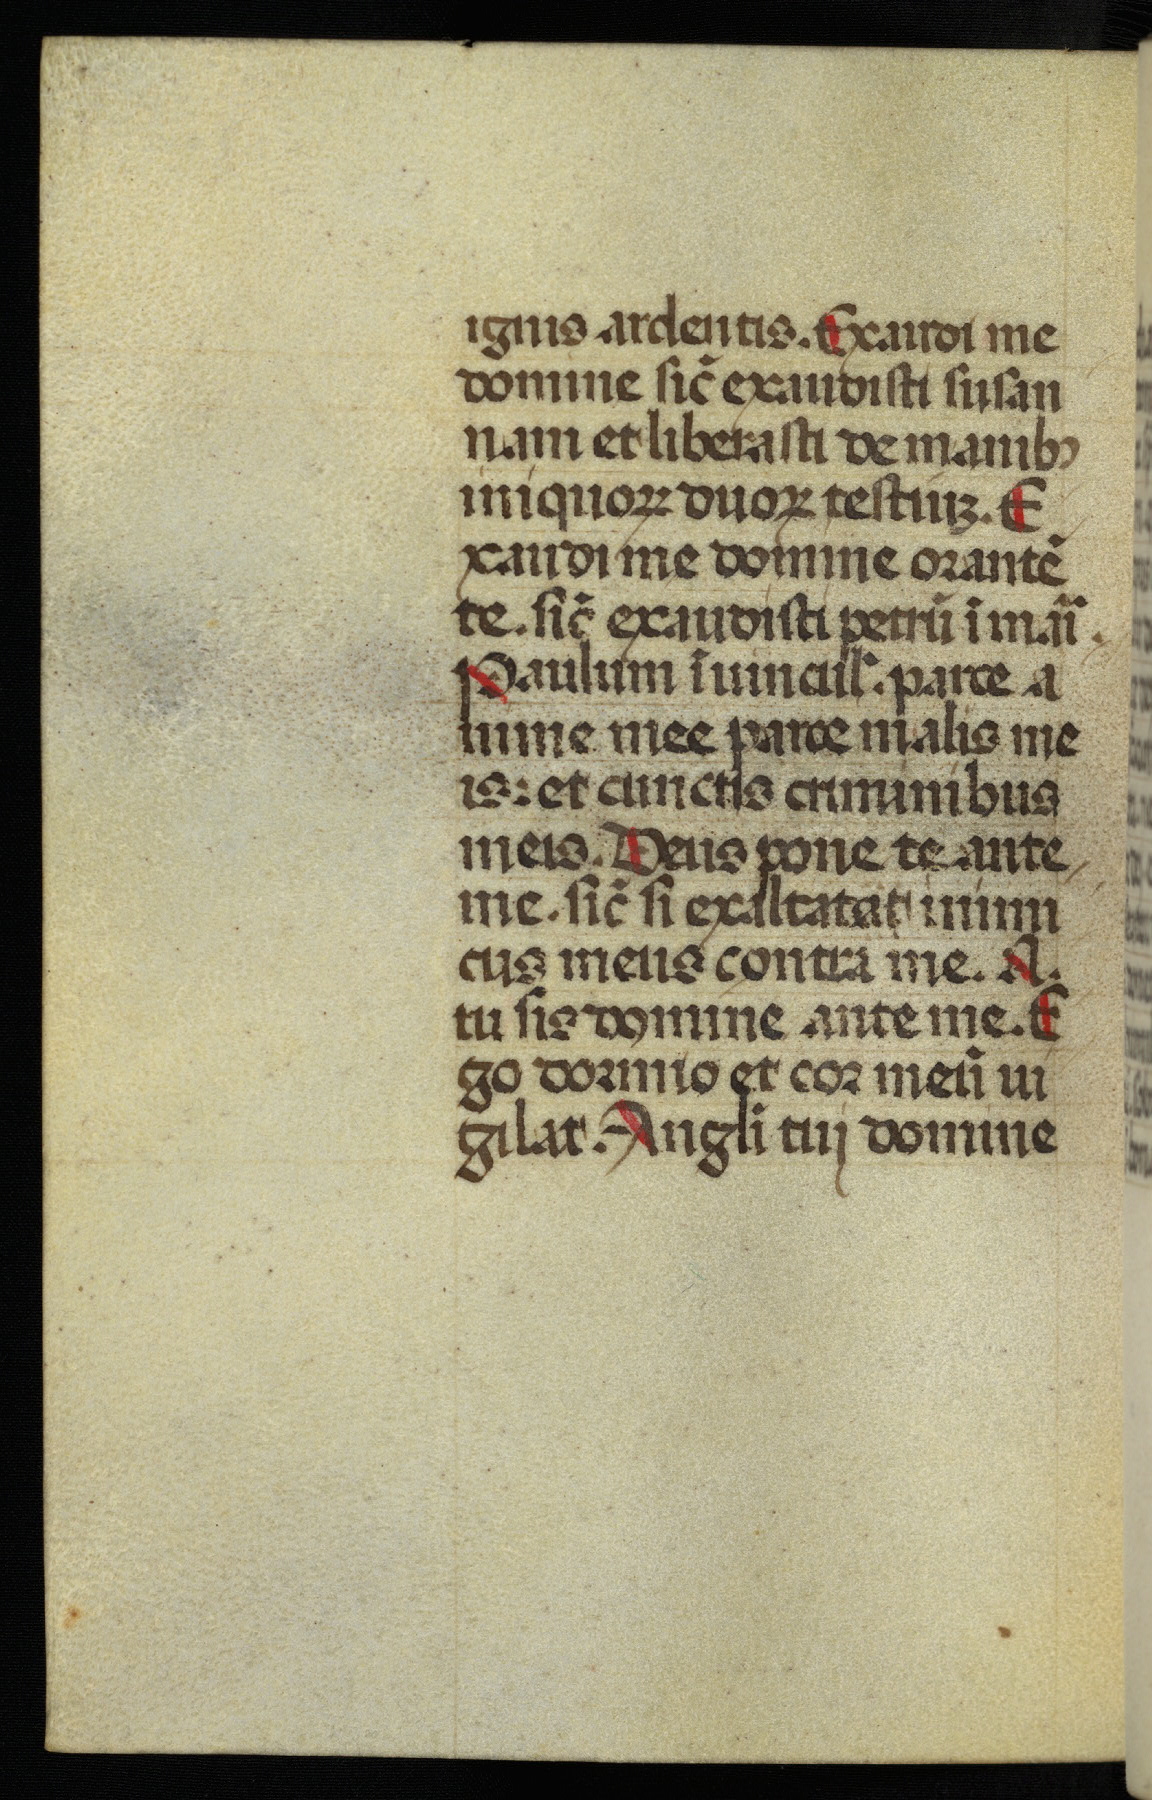 ignis ardentis. Exaudi me
domine sic̄ exaudisti susan
nam et liberasti de manibꝰ
iniquoꝝ duoꝝ testiuꝫ. E
xaudi me domine orantē
te. sic̄ exaudisti petrū ī mari.
Paulum ī uincul̕. parce a
nime mee parce malis me
is: et cunctis criminibus
meis. Deus pone te ante
me. sic̄ si exaltatat inimi
cus meus contra me. A.
tu sis domine ante me. E
go dormio et cor meū ui
gilat. Angli tuj domine